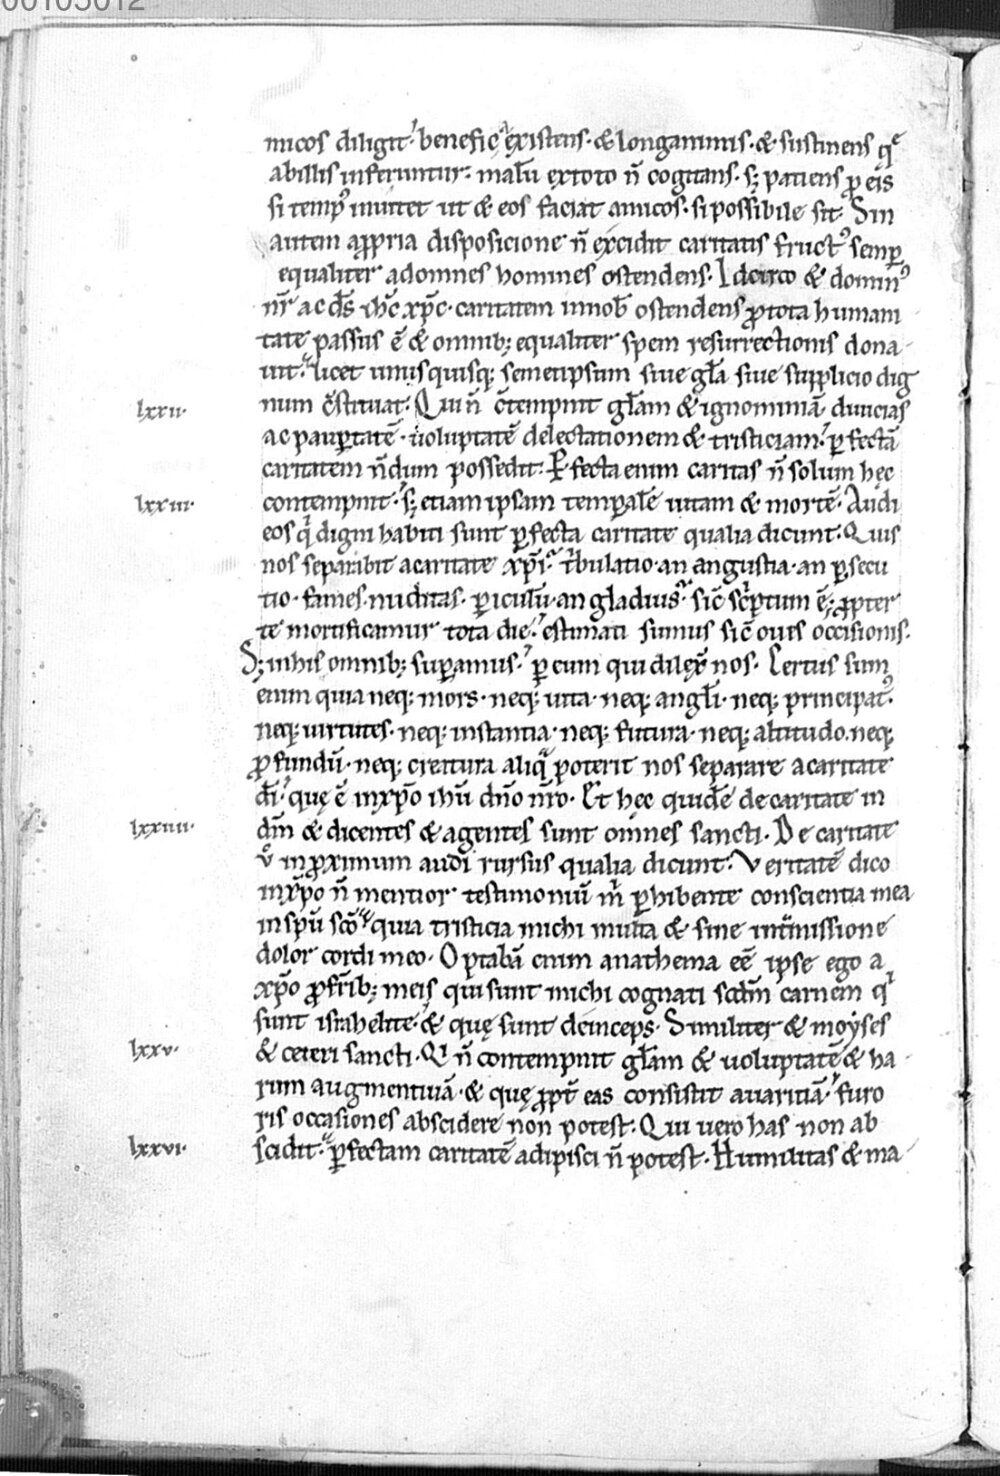 00105012
micos diligit. benefic᷒ existens. & longanimis. & sustinens qͤ
abillis inferuntur. malū extoto n̄ cogitans. s; patiens ꝓ eis
si tempꝰ inuitet ut & eos faciat amicos. si possibile sit. Sin
autem aꝓpria disposicione n̄ excidit caritatis fructꝰ semꝑ
equaliter adomnes homines ostendens. Idcirco & dominꝰ
nr̄ ac ds̄ ih̄c xp̄c. caritatem innob̄ ostendens ꝓtota humani
tate passus ē & omnib; equaliter spem resurrectionis dona-
uit. licet unusquisq; semetipsum siue gl̄a siue supplicio dig
lxxii. num c̄stituat. Qui n̄ c̄tempnit gl̄am & ignominiā diuicias
ac pauꝑtatē. uoluptatē delectationem & tristiciam. ꝑfectā
caritatem n̄dum possedit. Ꝑfecta enim caritas n̄ solum hęc
lxxiii. contempnit. s; etiam ipsam tempalē uitam & mortē. Audi
eos qi digni habiti sunt ꝑfecta caritate qualia dicunt. Quis
nos separabit acaritate xp̄i. tbulatio. an angustia. an ꝑsecu
tio. fames. nuditas. ꝑiculū. an gladius. sic̄ sc̄ptum ē; ꝓpter
te mortificamur tota die. estimati sumus sic̄ oues occisionis.
S; inhis omnib; suꝑamus. ꝑ eum qui dilex̄ nos. Certus sum
enim quia neq; mors. neq; uita. neq; angl̄i. neq; principatꝰ.
neq; uirtutes. neq; instantia. neq; futura. neq; altitudo. neq;
ꝓfundū. neq; creatura aliqᵃ poterit nos separare acaritate
dī. quę ē inxp̄o ihū dn̄o nr̄o. Et hęc quidē decaritate in
lxxiiii. dm̄ & dicentes & agentes sunt omnes sancti. De caritate
v̊ inꝓximum audi rursus qualia dicunt. Veritatē dico
inxp̄o n̄ mentior testimoniū m̄ ꝑhibente conscientia mea
inspū scō. quia tristicia michi multa & sine int̄missione
dolor cordi meo. Optabā enim anathema eē ipse ego a
xp̄o ꝓfrīb; meis qui sunt michi cognati scdm̄ carnem qi
sunt israhelite. & quę sunt deinceps. Similiter & moyses
lxxv. & ceteri sancti. Qi n̄ contempnit gl̄am & uoluptatē & ha-
rum augmentiuā. & quę ꝓpt̄ eas consistit auaritiā. furo
ris occasiones abscidere non potest. Qui uero has non ab
lxxvi. scidit. ꝑfectam caritatē adipisci n̄ potest. Humilitas & ma-